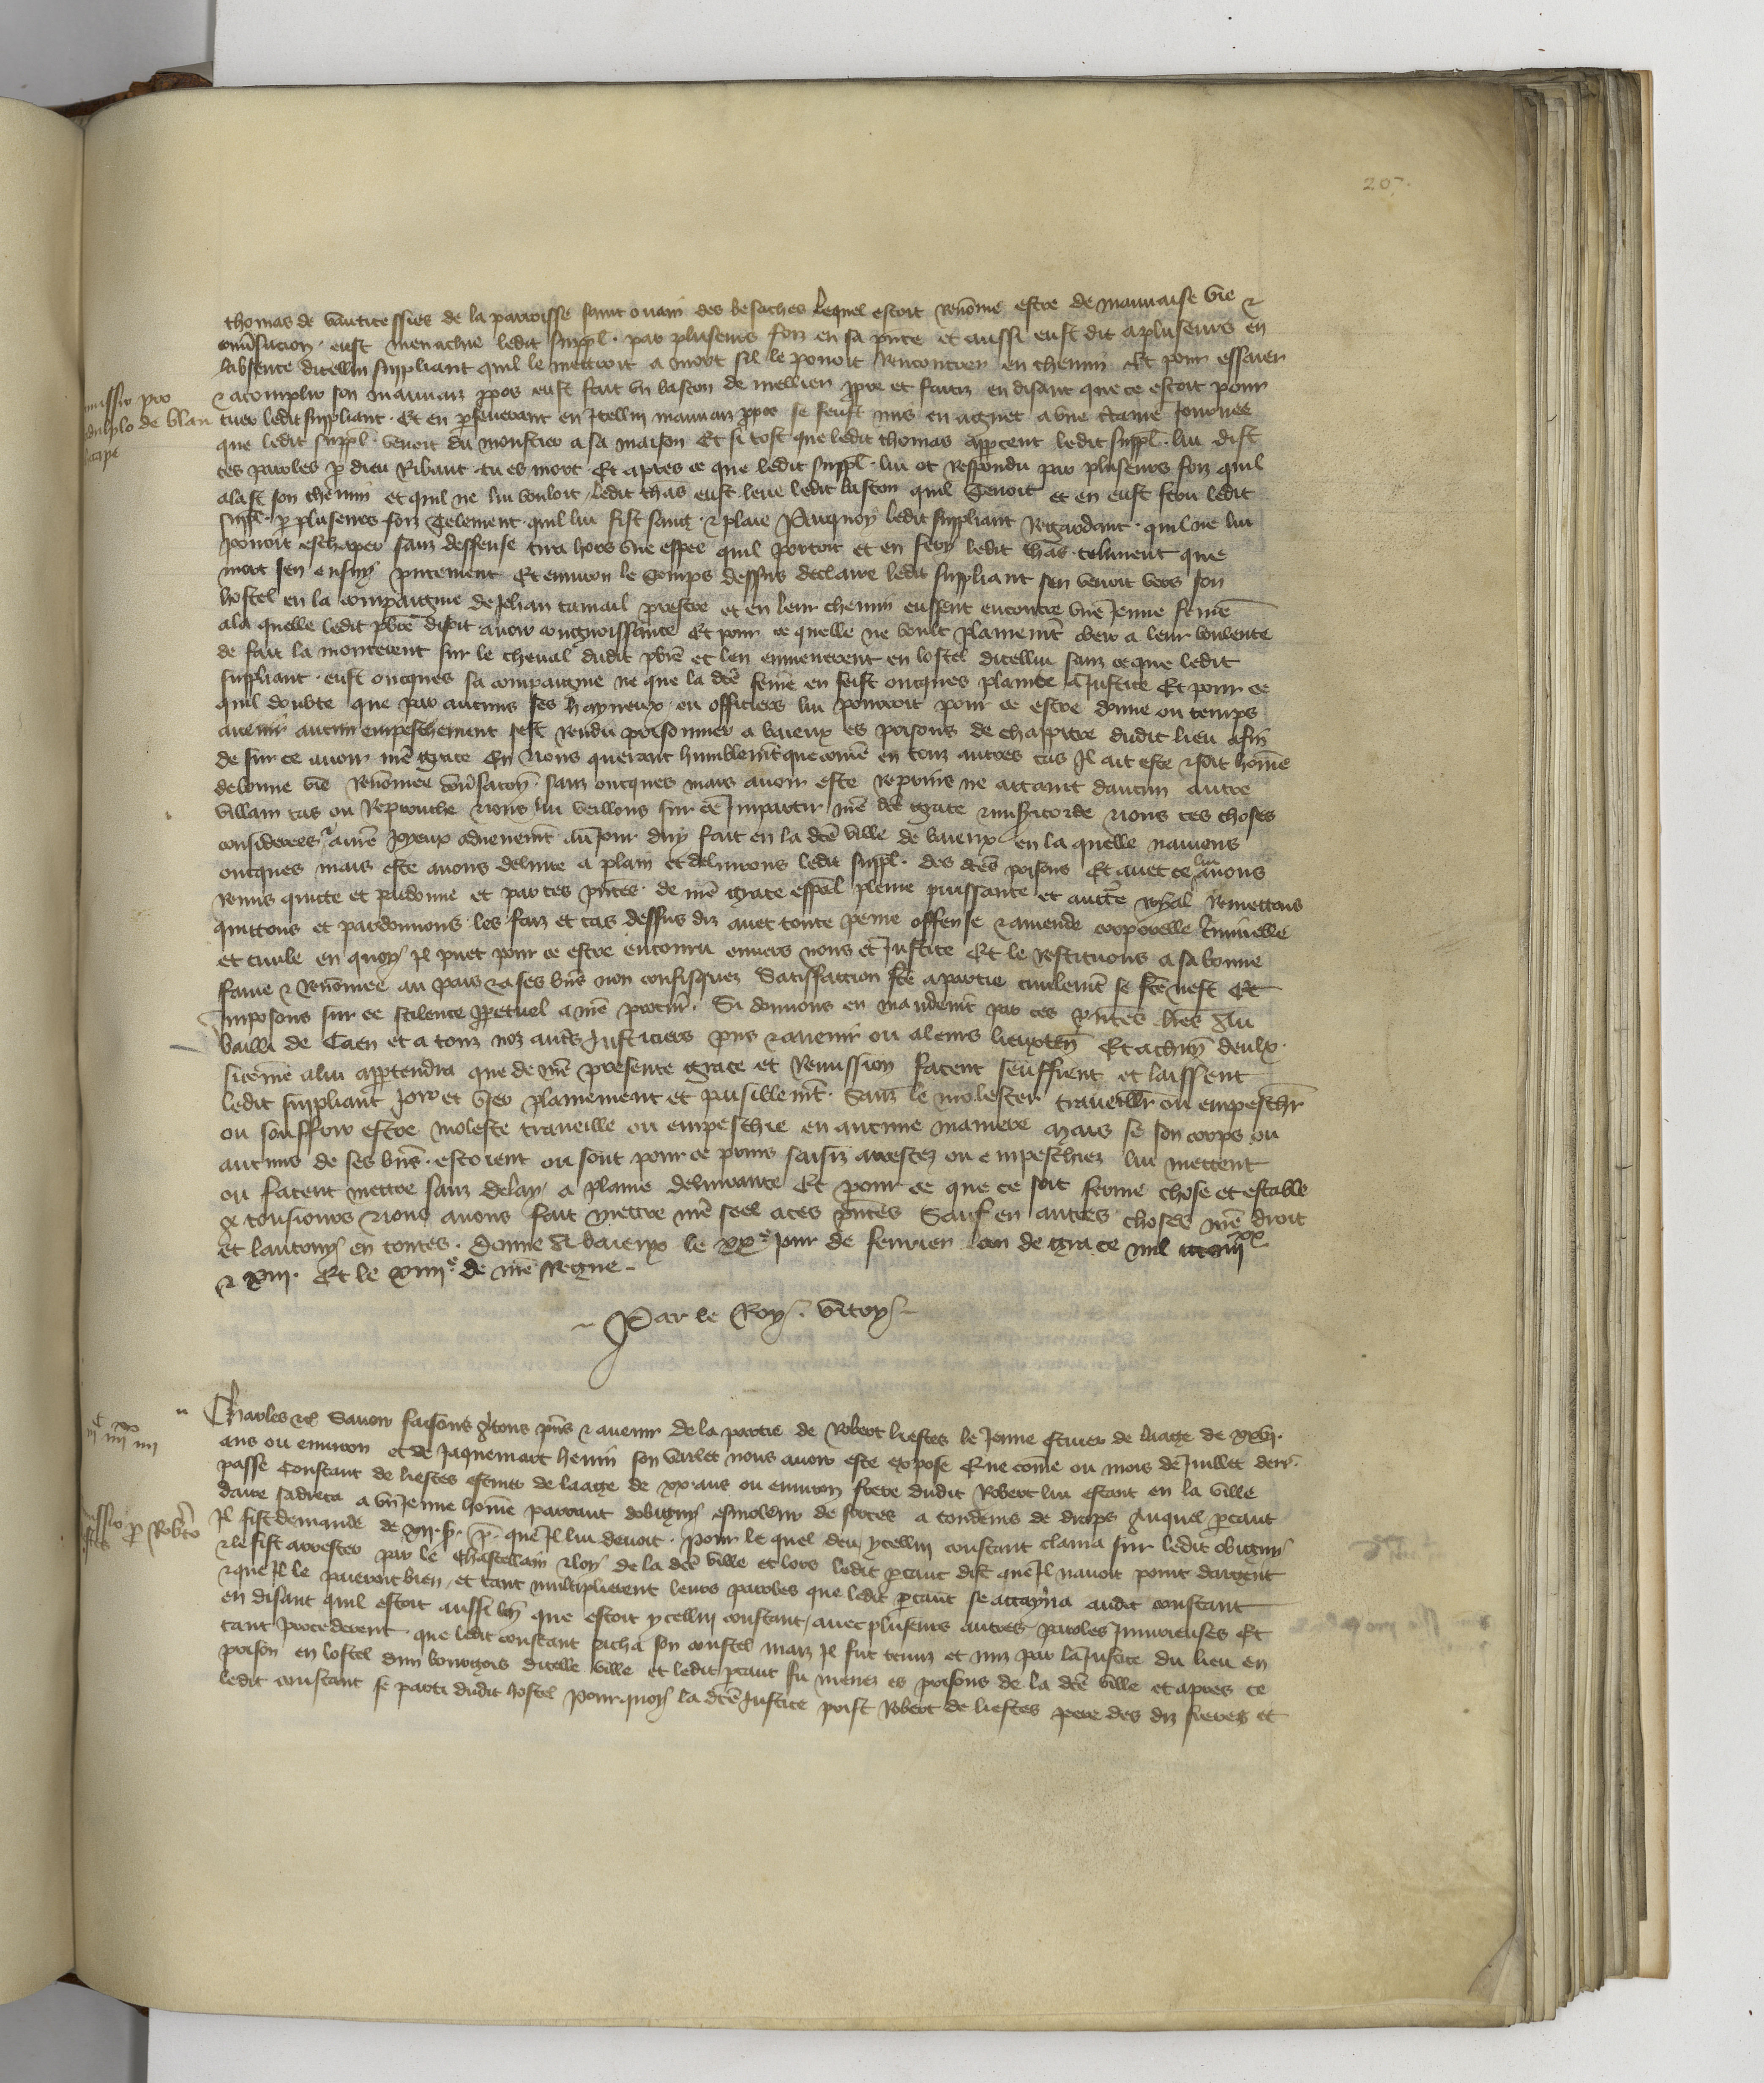 207.
thomas de de la parroisse saint ouain des besaches lequel estoit renōme estre de mauuaise vie &
conūsacion eust menachie ledit suppl. par pluseurs foiz en sa pn̄ce et aussi eust dit a pluseurs en
labsence dicellui suppliant quil le mettroit a mort sil le pouoit rencontrer en chemin Et pour essaier
& acomplir son mauuaiz ppos eust fait vn baston de mellier ppre et faitiz en disant que ce estoit pour
tuer ledit suppliant. Et en pseuerant en Icellui mauuaiz ppos se feust mis en aguet a vne ctaine Journee
que ledit suppl. venoit du moustier a sa maison Et si tost que ledit thomas appceut ledit suppl. lui dist
ces paroles p dieu Ribaut tu es mort. Et apres ce que ledit suppl. lui ot respondu par pluseurs foiz quil
alast son chemin et quil ne lui vouloit ledit thās eust leue ledit baston quil tenoit et en eust feru ledit
suppl. p pluseurs foiz telement quil lui fist sang & plaie Pourquoy ledit suppliant regardant quil ne lui
pouoit eschaper sanz deffense tira hors vne espee quil portoit et en fery ledit thās telement que
mort sen ensuy pn̄tement Et enuiron le temps dessus declaire ledit suppliant sen venoit vers son
hostel en la compaignie de Jehan tamail prestre et en leur chemin eussent encontre vne Jeune femē
ala quelle ledit pbr̄e disoit auoir congnoissance Et pour ce quelle ne voult plainemt̄ obeir a leur voulente
de fait la monterent sur le cheual dudit pbr̄e et len emmenerent en lostel dicellui sanz ce que ledit
suppliant eust oncques sa compaignie ne que la dc̄e femē en feist oncques plainte a Justice Et pour ce
quil doubte que par aucuns ses hayneux ou officiers lui pourroit pour ce estre donne ou temps
auenir aucun empeschement sest rendu prisonnier a baieux es prisons de chapitre dudit lieu afin
de sur ce auoir nr̄e grace En nous querant humblemt̄ que comē en touz autres cas Il ait este & soit homē
de bonne vie renōmee conūsacion sanz oncques mais auoir este reprins ne attaint daucun autre
villain cas ou reprouche nous lui veillons sur ce Impartir nr̄e dc̄e grace & misericorde nous ces choses
considerees a nr̄e Joyeux aduenemt̄ au Jour duy fait en la dc̄e ville de baieux en la quelle nauions
oncques mais este auons deliure a plain et deliurons ledit suppl. des dc̄es prisons Et auec ce lui auons
remis quicte et pardonne et par ces pn̄tes de nr̄e grace esp̄al pleine puissance et auctte royal remettons
quittons et pardonnons les faiz et cas dessus diz auec toute peine offense & amende corporelle criminelle
et ciuile en quoy il puet pour ce estre encouru enuers nous et Justice Et le restituons a sa bonne
fame & renōmee au pais & a ses biēs non confisquez Satisfaccion fc̄e a partie ciuilemt̄ se fc̄e nest Et
Imposons sur ce scilence ppetuel a nr̄e procur̄. Si donnons en mandemt̄ par ces pn̄tes lr̄es Au
bailli de Caen et a touz noz autr̄s Justiciers pn̄s & auenir ou a leurs lieuxten̄ Et a chūn deulx
sicōme a lui apptendra que de nr̄e presente grace et remission facent seuffrent et laissent
ledit suppliant Joir et vser plainement et paisiblemt̄ Sanz le molester traueiller ou empeschr̄
ou souffrir estre moleste traueille ou empeschie en aucune maniere Mais se son corps ou
aucuns de ses bn̄s estoient ou sont pour ce prins saisiz arrestez ou empeschiez lui mettent
ou facent mettre sanz delay a plaine deliurance Et pour ce que ce soit ferme chose et estable
a tousiours nous auons fait mettre nr̄e seel a ces pn̄tes Sauf en autres choses nr̄e droit
et lautruy en toutes. Donne A baieux le xxe Jour de feurier lan de grace mil iiiixx
& xiii. Et le xiiiie de nr̄e regne.
Par le Roy.
Charles &c̄ Sauoir faisons a tous pn̄s & auenir de la partie de Robert liestes le Jeune escuier de laage de xxvi.
ans ou enuiron et de Jaquemart henin son varlet nous auoir este expose Que cōme ou mois de Juillet derr̄.
passe Constant de liestes escuier de laage de xx ans ou enuiron frere dudit Robert lui estant en la ville
daire sadreca a vn Jeune homē parcaut dobigny esmoleur de forces a tondeurs de draps Auquel pcaut
Il fist demande de xii. s. p. que Il lui deuoit. Pour le quel deu ycellui constant clama sur ledit obigny
& le fist arrester par le Chastellain & loy de la dc̄e ville et lors ledit pcaut dist que Il nauoit point dargent
& que Il le paieroit bien et tant multiplierent leurs paroles que ledit pcaut se attayna audit constant
en disant quil estoit aussi bn̄ que estoit ycellui constant auec pluseurs autres paroles Iniurieuses Et
tant procederent que ledit constant sacha son coustel maiz Il fut tenuz et mis par la Justice du lieu en
prison en lostel dun bourgois dicelle ville et ledit pcaut fu menez es prisons de la dc̄e ville et apres ce
ledit constant se parti dudit hostel Pourquoy la dc̄e Justice prist Robert de liestes pere des diz freres et